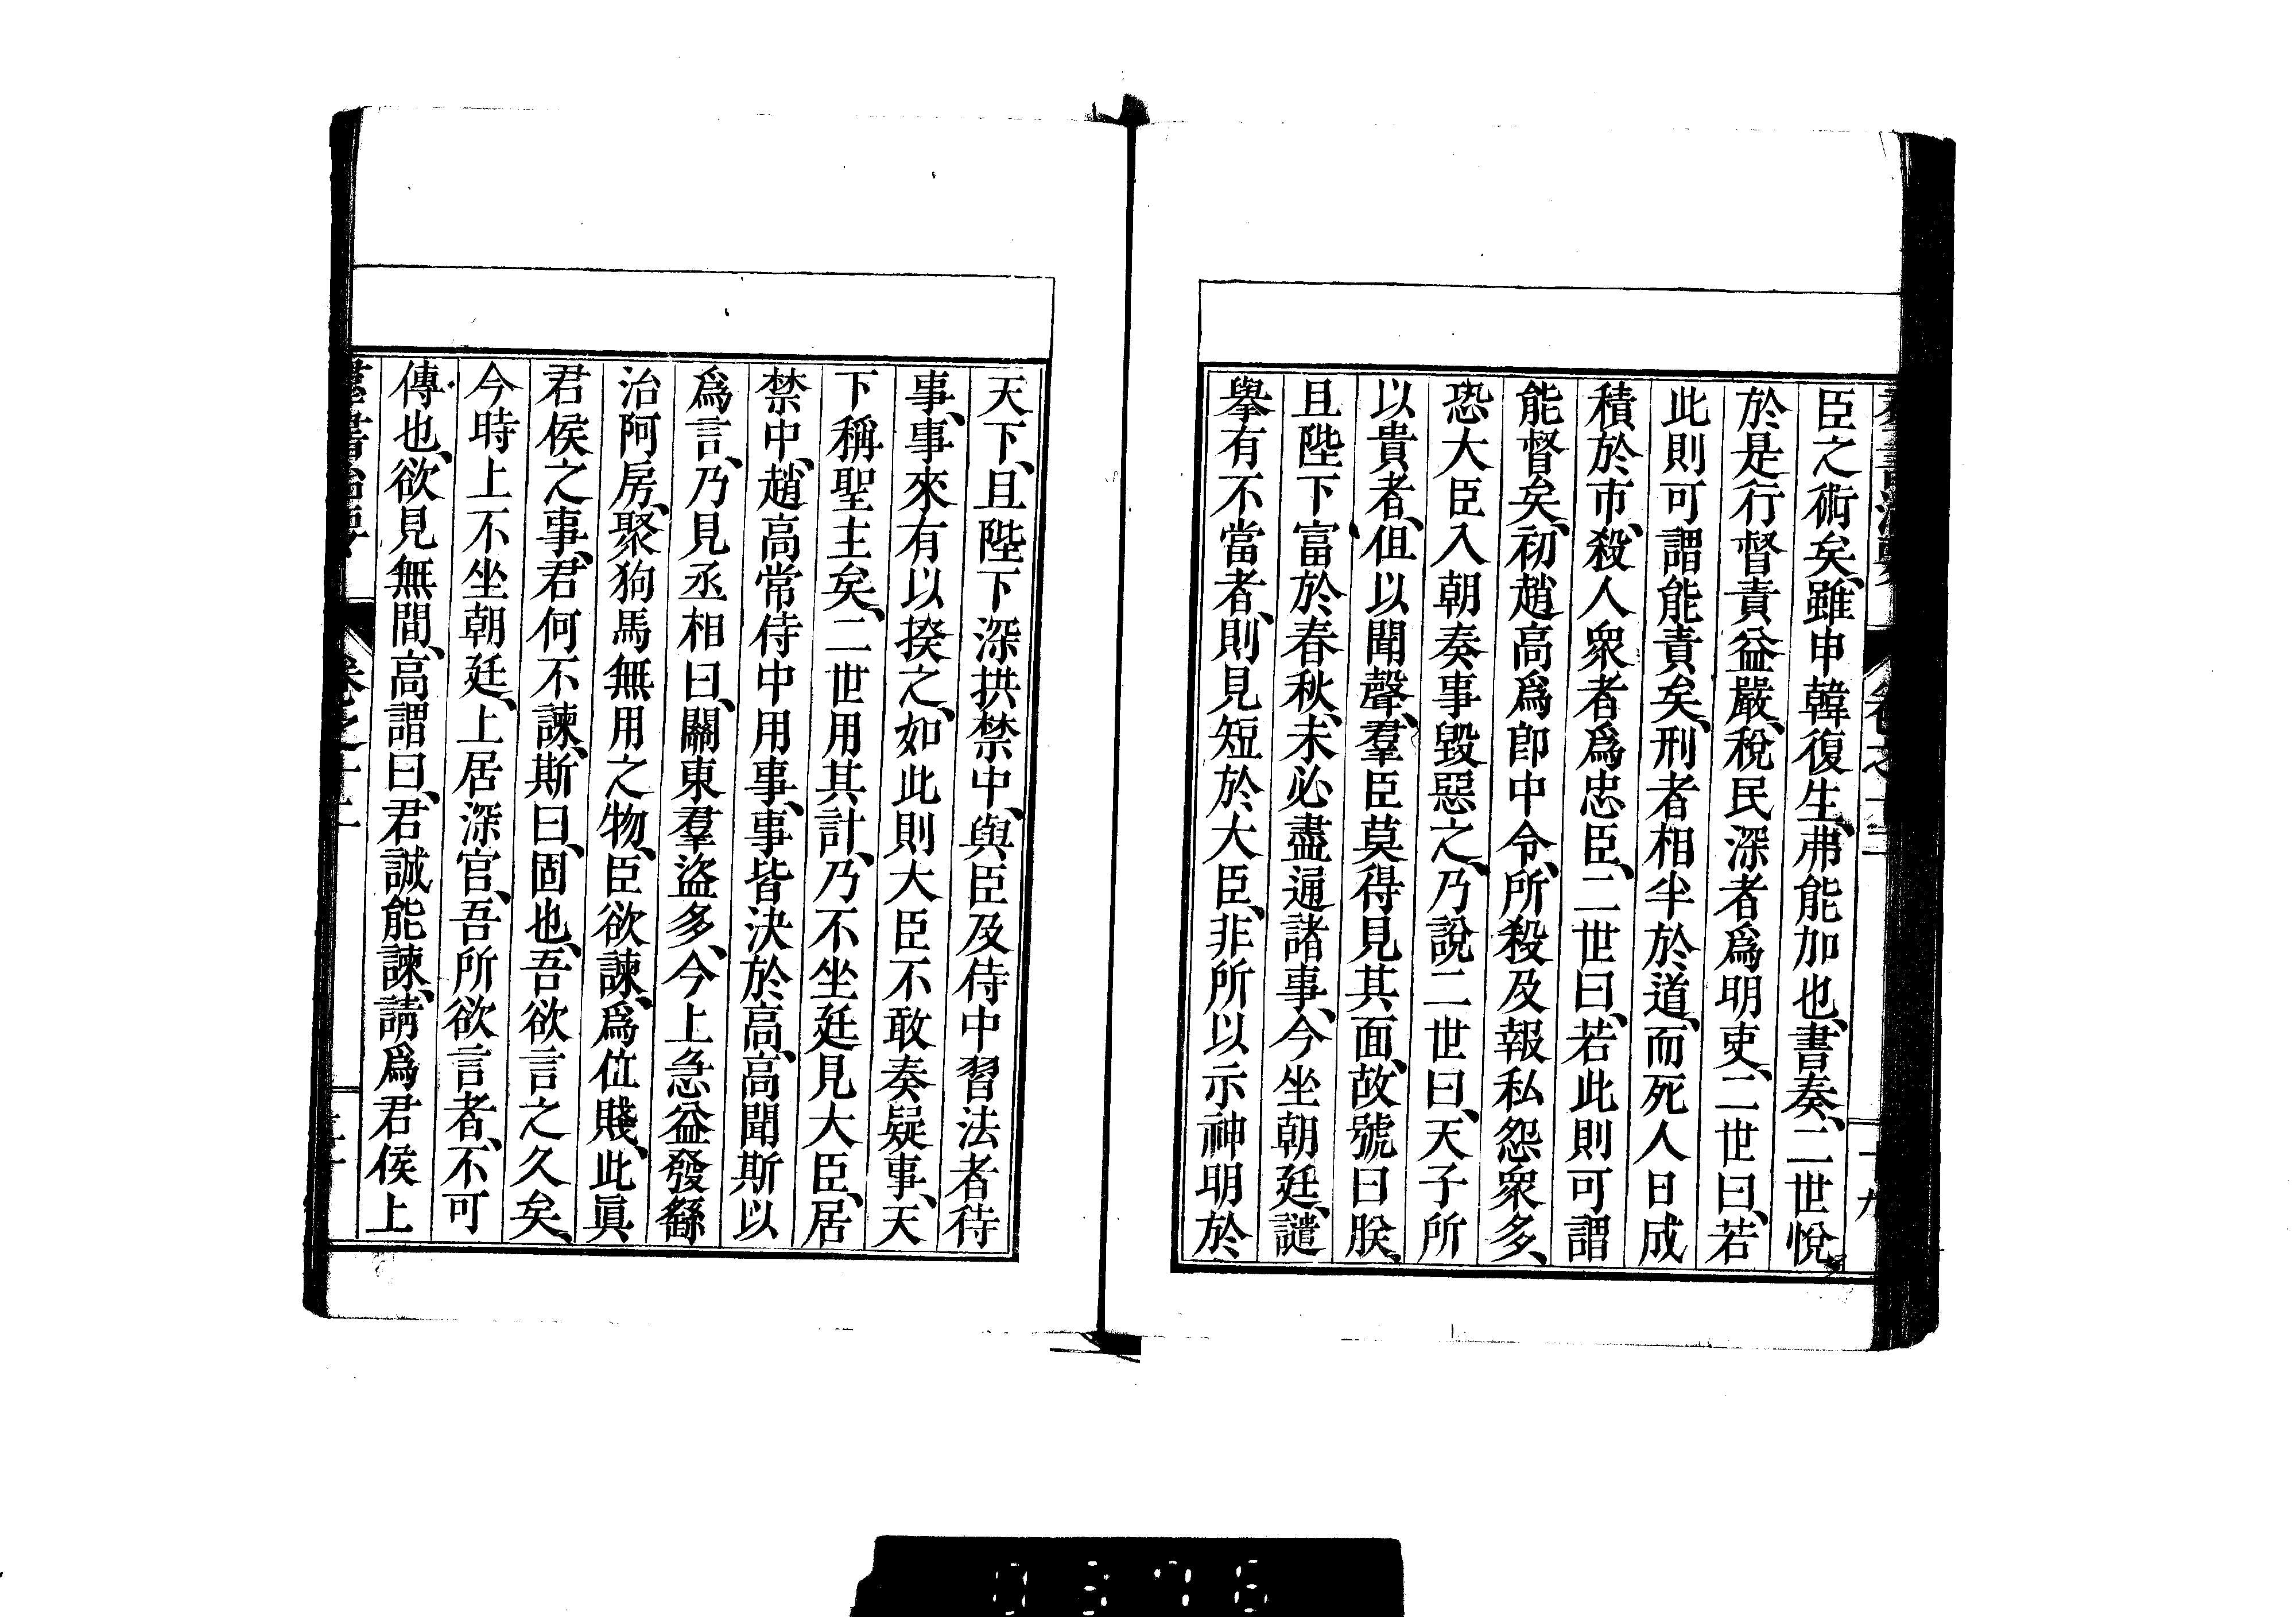 臣之術矣、雖申韓復生、弗能加也、書奏、二世悅
於是行督責益嚴、稅民深者爲明吏、二世曰、若
此則可謂能責矣、刑者相半於道、而死人日成
積於市、殺人衆者爲忠臣、二世曰、若此則可謂
能督矣、初趙高爲郎中令、所殺及報私怨衆多、
恐大臣入朝奏事毀惡之、乃說二世曰、天子所
以貴者、但以聞聲、羣臣莫得見其面、故號曰朕、
且陛下富於春秋、未必盡通諸事、今坐朝廷、譴
擧有不當者、則見短於大臣、非所以示神明於
天下、且陛下深拱禁中、與臣及侍中習法者待
事、事來有以揆之、如此則大臣不敢奏疑事、天
下稱聖主矣、二世用其計、乃不坐廷見大臣、居
禁中、趙高常侍中用事、事皆決於高、高聞斯以
爲言、乃見丞相曰、關東羣盜多、今上急益發繇
治阿房、聚狗馬無用之物、臣欲諫、爲位賤、此眞
君侯之事、君何不諫、斯曰、固也、吾欲言之久矣、
今時上不坐朝廷、上居深宮、吾所欲言者、不可
傳也、欲見無間、高謂曰、君誠能諫、請爲君侯上
羣書治要
卷之十二